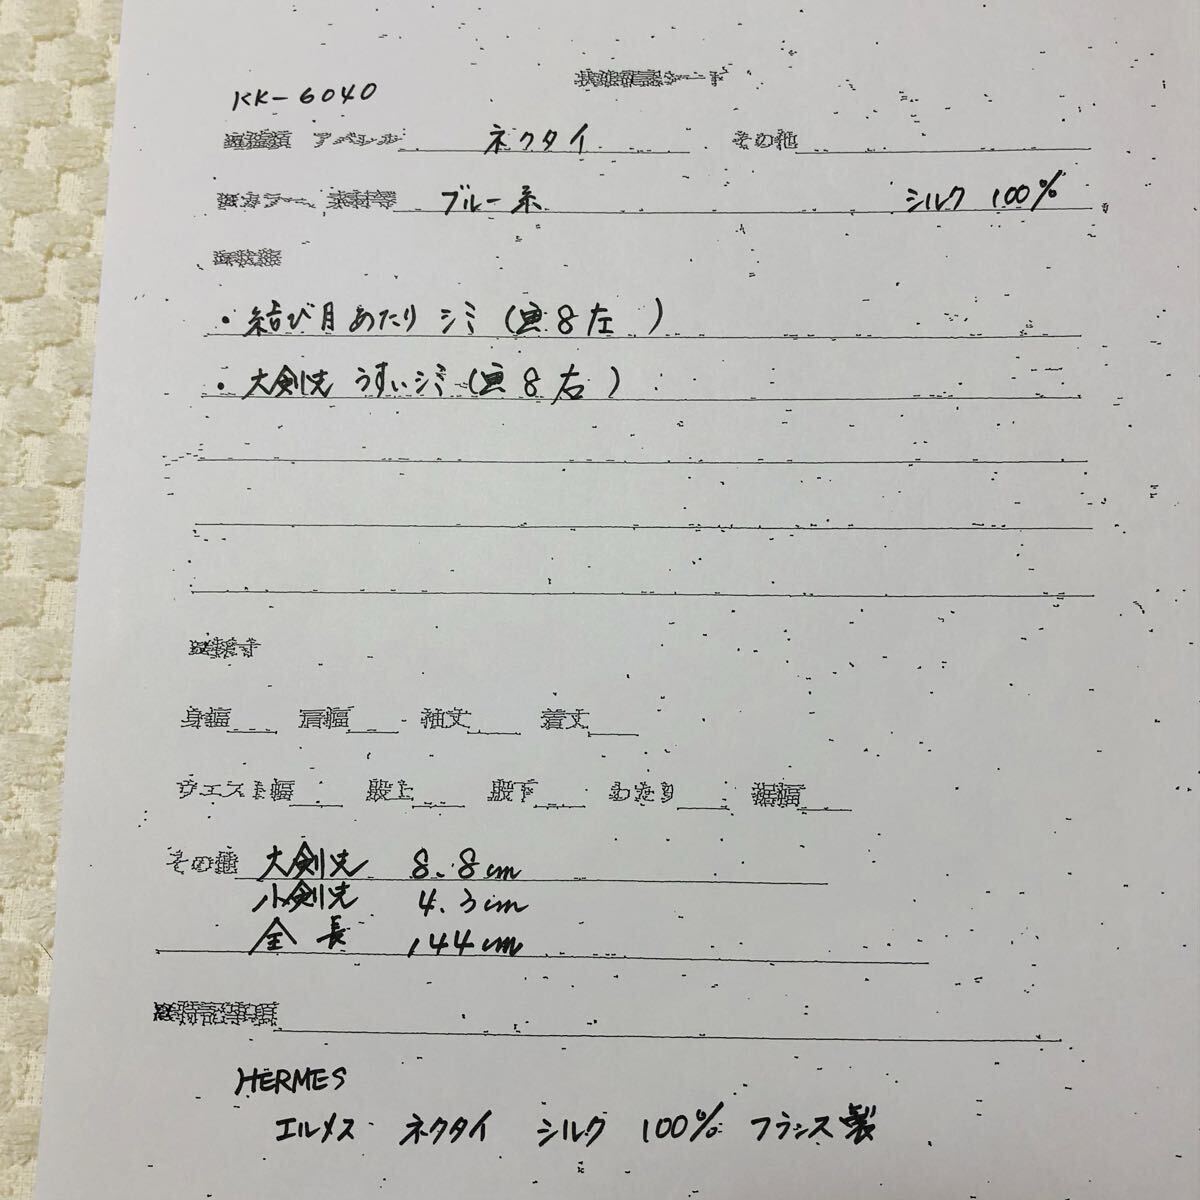 状態確認シート
KK-6040
アパレル ネクタイ その他
カラー、素材等 ブルー系 シルク 100%
・結び目あたり シミ (画8左 )
・大剣先 うすいシミ (画8右 )
身幅 肩幅 袖丈 着丈
ウエスト幅 股上 股下 わたり 裾幅
その他 大剣先 8.8cm
小剣先 4.3cm
全長 144cm
特記事項
HERMES
エルメス ネクタイ シルク 100% フランス製